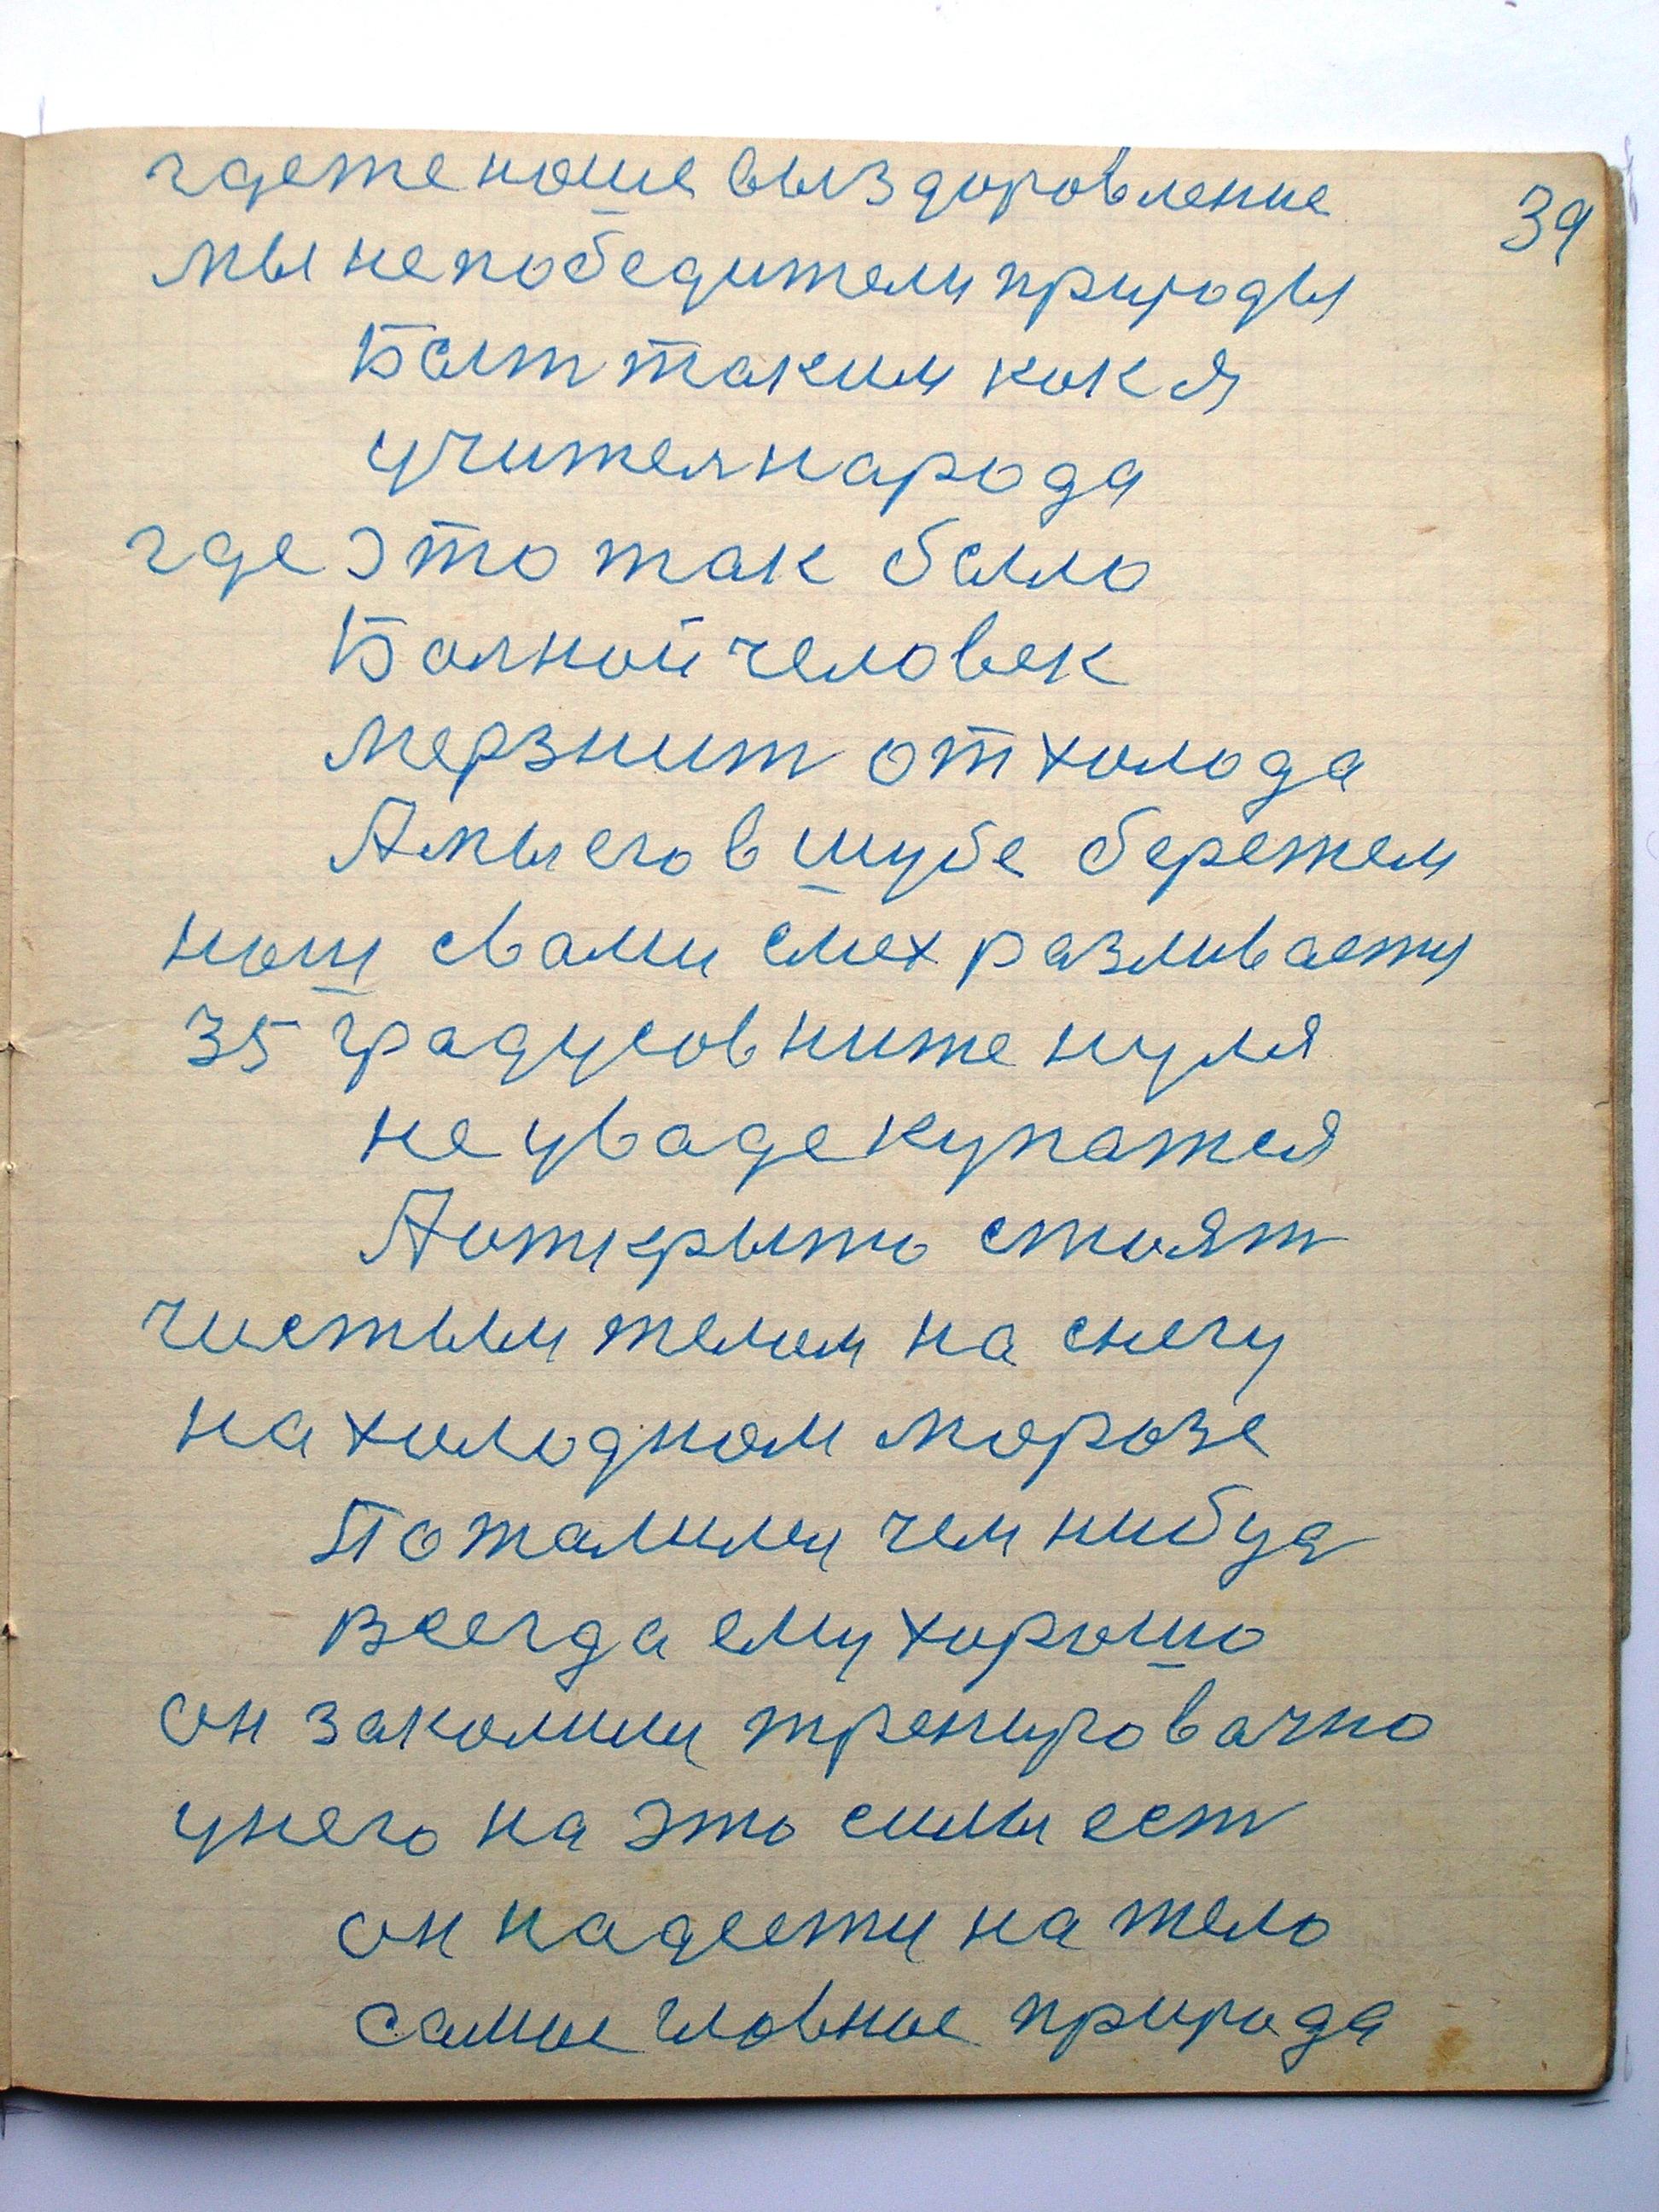 39
гдеже наше выздоровление
мы непобедители природы
Быт таким как я
учителя народа
где это так было
Болной человек
мерзнит от холода
А мы его в шубе бережем
наш свами смех разливается
35 градусов ниже нуля
не у ваде купатся
А открыто стоят
чистым телом на снегу
на холодном морозе
Пожалился чем нибуд
всегда ему хорошо
он заколили тренировачно
у него на это силы ест
он надеется на тело
самое главное природа